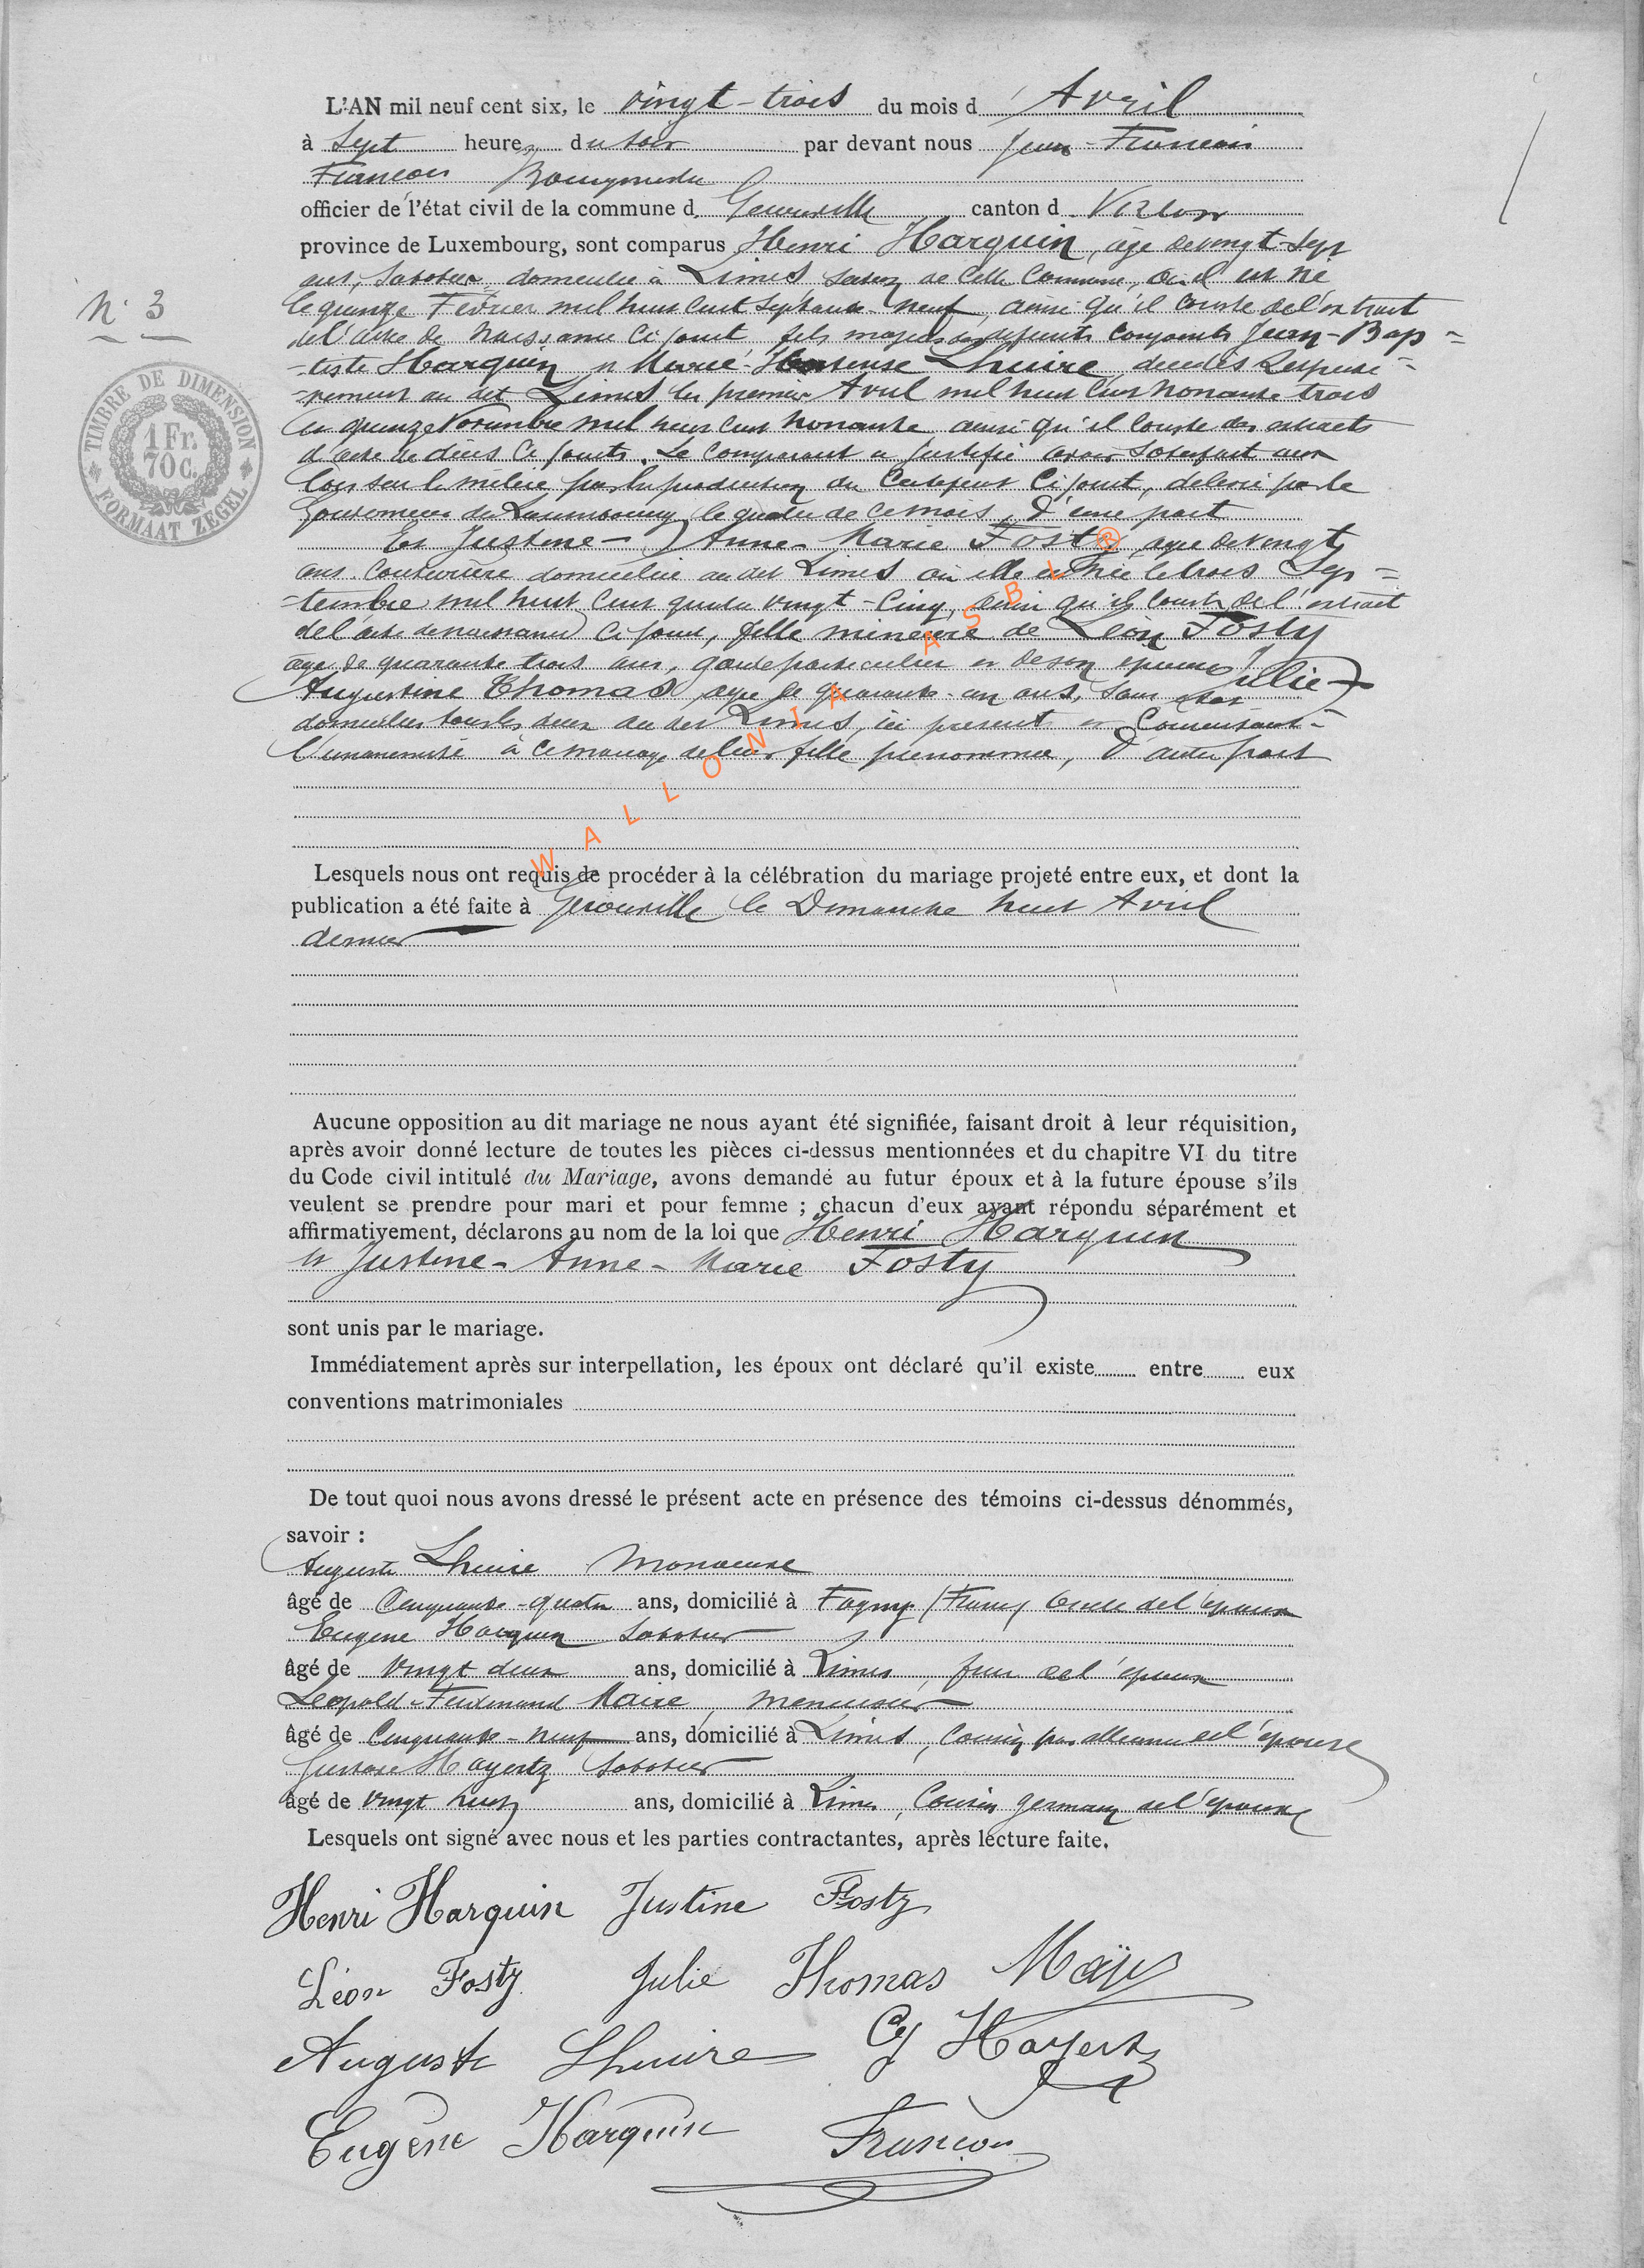 L'AN mil neuf cent six, le vingt-trois du mois d' Avril
à Sept heures du soir par devant nous Jean-François
François Bourgmestre
officier de l'état civil de la commune d. Gerouville canton d. Virton
province de Luxembourg, sont comparus Henri Harquin, âgé de vingt-sept
ans, Sabotier, domicilié à Limes, section de cette Commune, où il est né
le quinze Février mil huit cent septante-neuf, ainsi qu'il conste de l'extrait
de l'acte de naissance ci joint fils majeur des défunts conjoints Jean-Bap=
=tiste Harquin et Marie-Hortense Lhuire décédés Respecti=
=vement au dit Limes les premier Avril mil huit cent nonante trois
et quinze Novembre mil huit cent nonante ainsi qu'il conste des extraits
d'acte de décès ci joints. Le Comparant a justifié avoir satisfait aux
lois sur la milice par la production du Certificat ci joint, délivré par le
Gouverneur du Luxembourg le quatre de ce mois, d'une part
N° 3
TIMBRE DE DIMENSION
1 Fr.
70 C.
FORMAAT ZEGEL
Et Justine-Anne-Marie Fosty, agée de vingt
ans Couturière domiciliée au dit Limes où elle est née le trois Sep=
=tembre mil huit cent quatre vingt-cinq, ainsi qu'il conste de l'extrait
de l'acte de naissance ci joint, fille mineure de Léon Fosty
agé de quarante trois ans, garde particulier et de son épouse Julie
Augustine Thomas agée de quarante-un ans, sans état
domiciliés tous les deux au dit Limes, ici présents et Consentant
à ce mariage de leur fille prénommée, d'autre part
WALLONIA ASBL ®
Lesquels nous ont requis de procéder à la célébration du mariage projeté entre eux, et dont la
publication a été faite à Gerouville le Dimanche huit Avril
dernier
Aucune opposition au dit mariage ne nous ayant été signifiée, faisant droit à leur réquisition,
après avoir donné lecture de toutes les pièces ci-dessus mentionnées et du chapitre VI du titre
du Code civil intitulé du Mariage, avons demandé au futur époux et à la future épouse s'ils
veulent se prendre pour mari et pour femme ; chacun d'eux ayant répondu séparément et
affirmativement, déclarons au nom de la loi que Henri Harquin
et Justine-Anne-Marie Fosty
sont unis par le mariage.
Immédiatement après sur interpellation, les époux ont déclaré qu'il existe entre eux
conventions matrimoniales
De tout quoi nous avons dressé le présent acte en présence des témoins ci-dessus dénommés,
savoir :
Auguste Lhuire
âgé de Cinquante-quatre ans, domicilié à Fagny (France) oncle de l'époux
Eugène Harquin Sabotier
âgé de Vingt deux ans, domicilié à Limes, frère de l'époux
Léopold-Ferdinand Maire, menuisier
âgé de Cinquante-neuf ans, domicilié à Limes, Cousin par alliance de l'épouse
Gustave Hayertz Sabotier
âgé de vingt huit ans, domicilié à Limes, Cousin germain de l'épouse
Lesquels ont signé avec nous et les parties contractantes, après lecture faite.
Henri Harquin Justine Fosty
Léon Fosty Julie Thomas
Auguste Lhuire G Hayertz
Eugène Harquin François